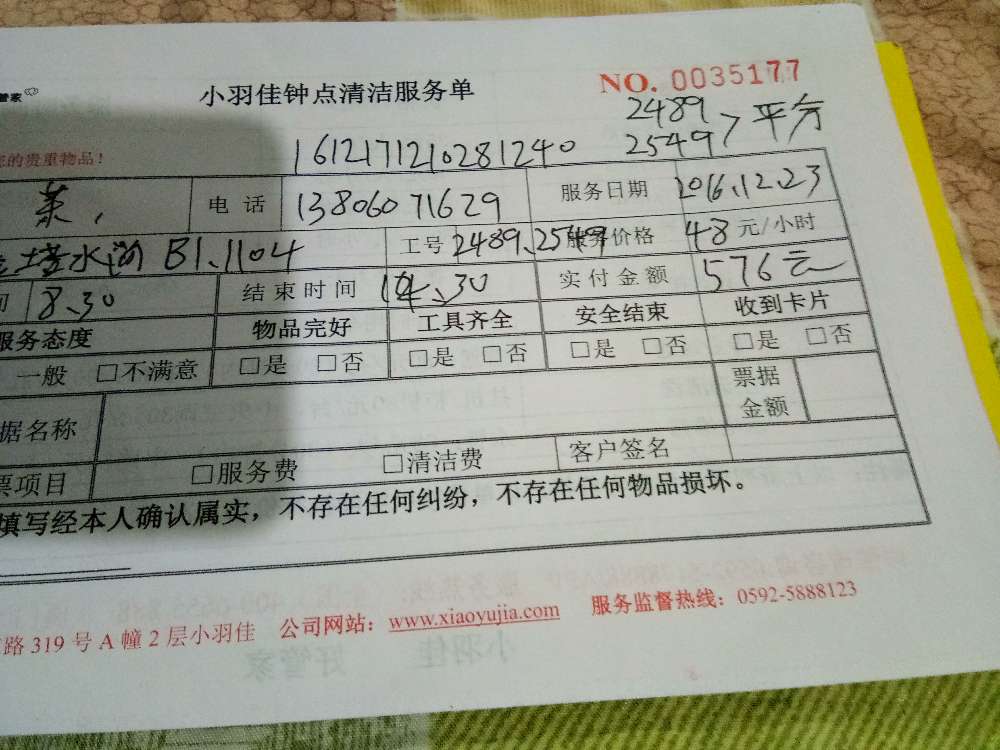 管家
小羽佳钟点清洁服务单 NO. 0035177
2489
2549 > 平分
您的贵重物品!
1612171210281240
电话 13806071629 服务日期 2016.12.23
水 B1.1104 工号 2489.2549 服务价格 48 元/小时
间 8.30 结束时间 14.30 实付金额 576元
服务态度 物品完好 工具齐全 安全结束 收到卡片
一般 □不满意 □是 □否 □是 □否 □是 □否 □是 □否
据名称 票据金额
票项目 □服务费 □清洁费 客户签名
填写经本人确认属实，不存在任何纠纷，不存在任何物品损坏。
路 319 号 A 幢 2 层小羽佳 公司网站：www.xiaoyujia.com 服务监督热线：0592-5888123